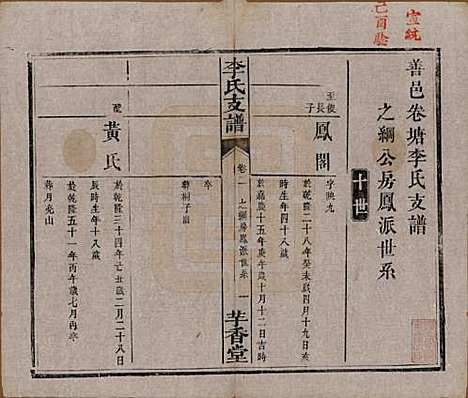 宣統
己酉
善邑卷塘李氏支譜
之綱公房鳳派世系
十世
至俊
長
子
鳳閣
字映九
於乾隆二十八年癸未歲四月十九日亥
時生年四十八歲
於嘉慶十五年庚午歲十月十二日吉時
李氏支譜
卷一
之綱房鳳派世系
一
芋香堂
卒
葬桐子嶺
配
黃氏
於乾隆三十四年己丑歲二月二十八日
辰時生年十八歲
於乾隆五十一年丙午歲七月丙卒
葬月光山